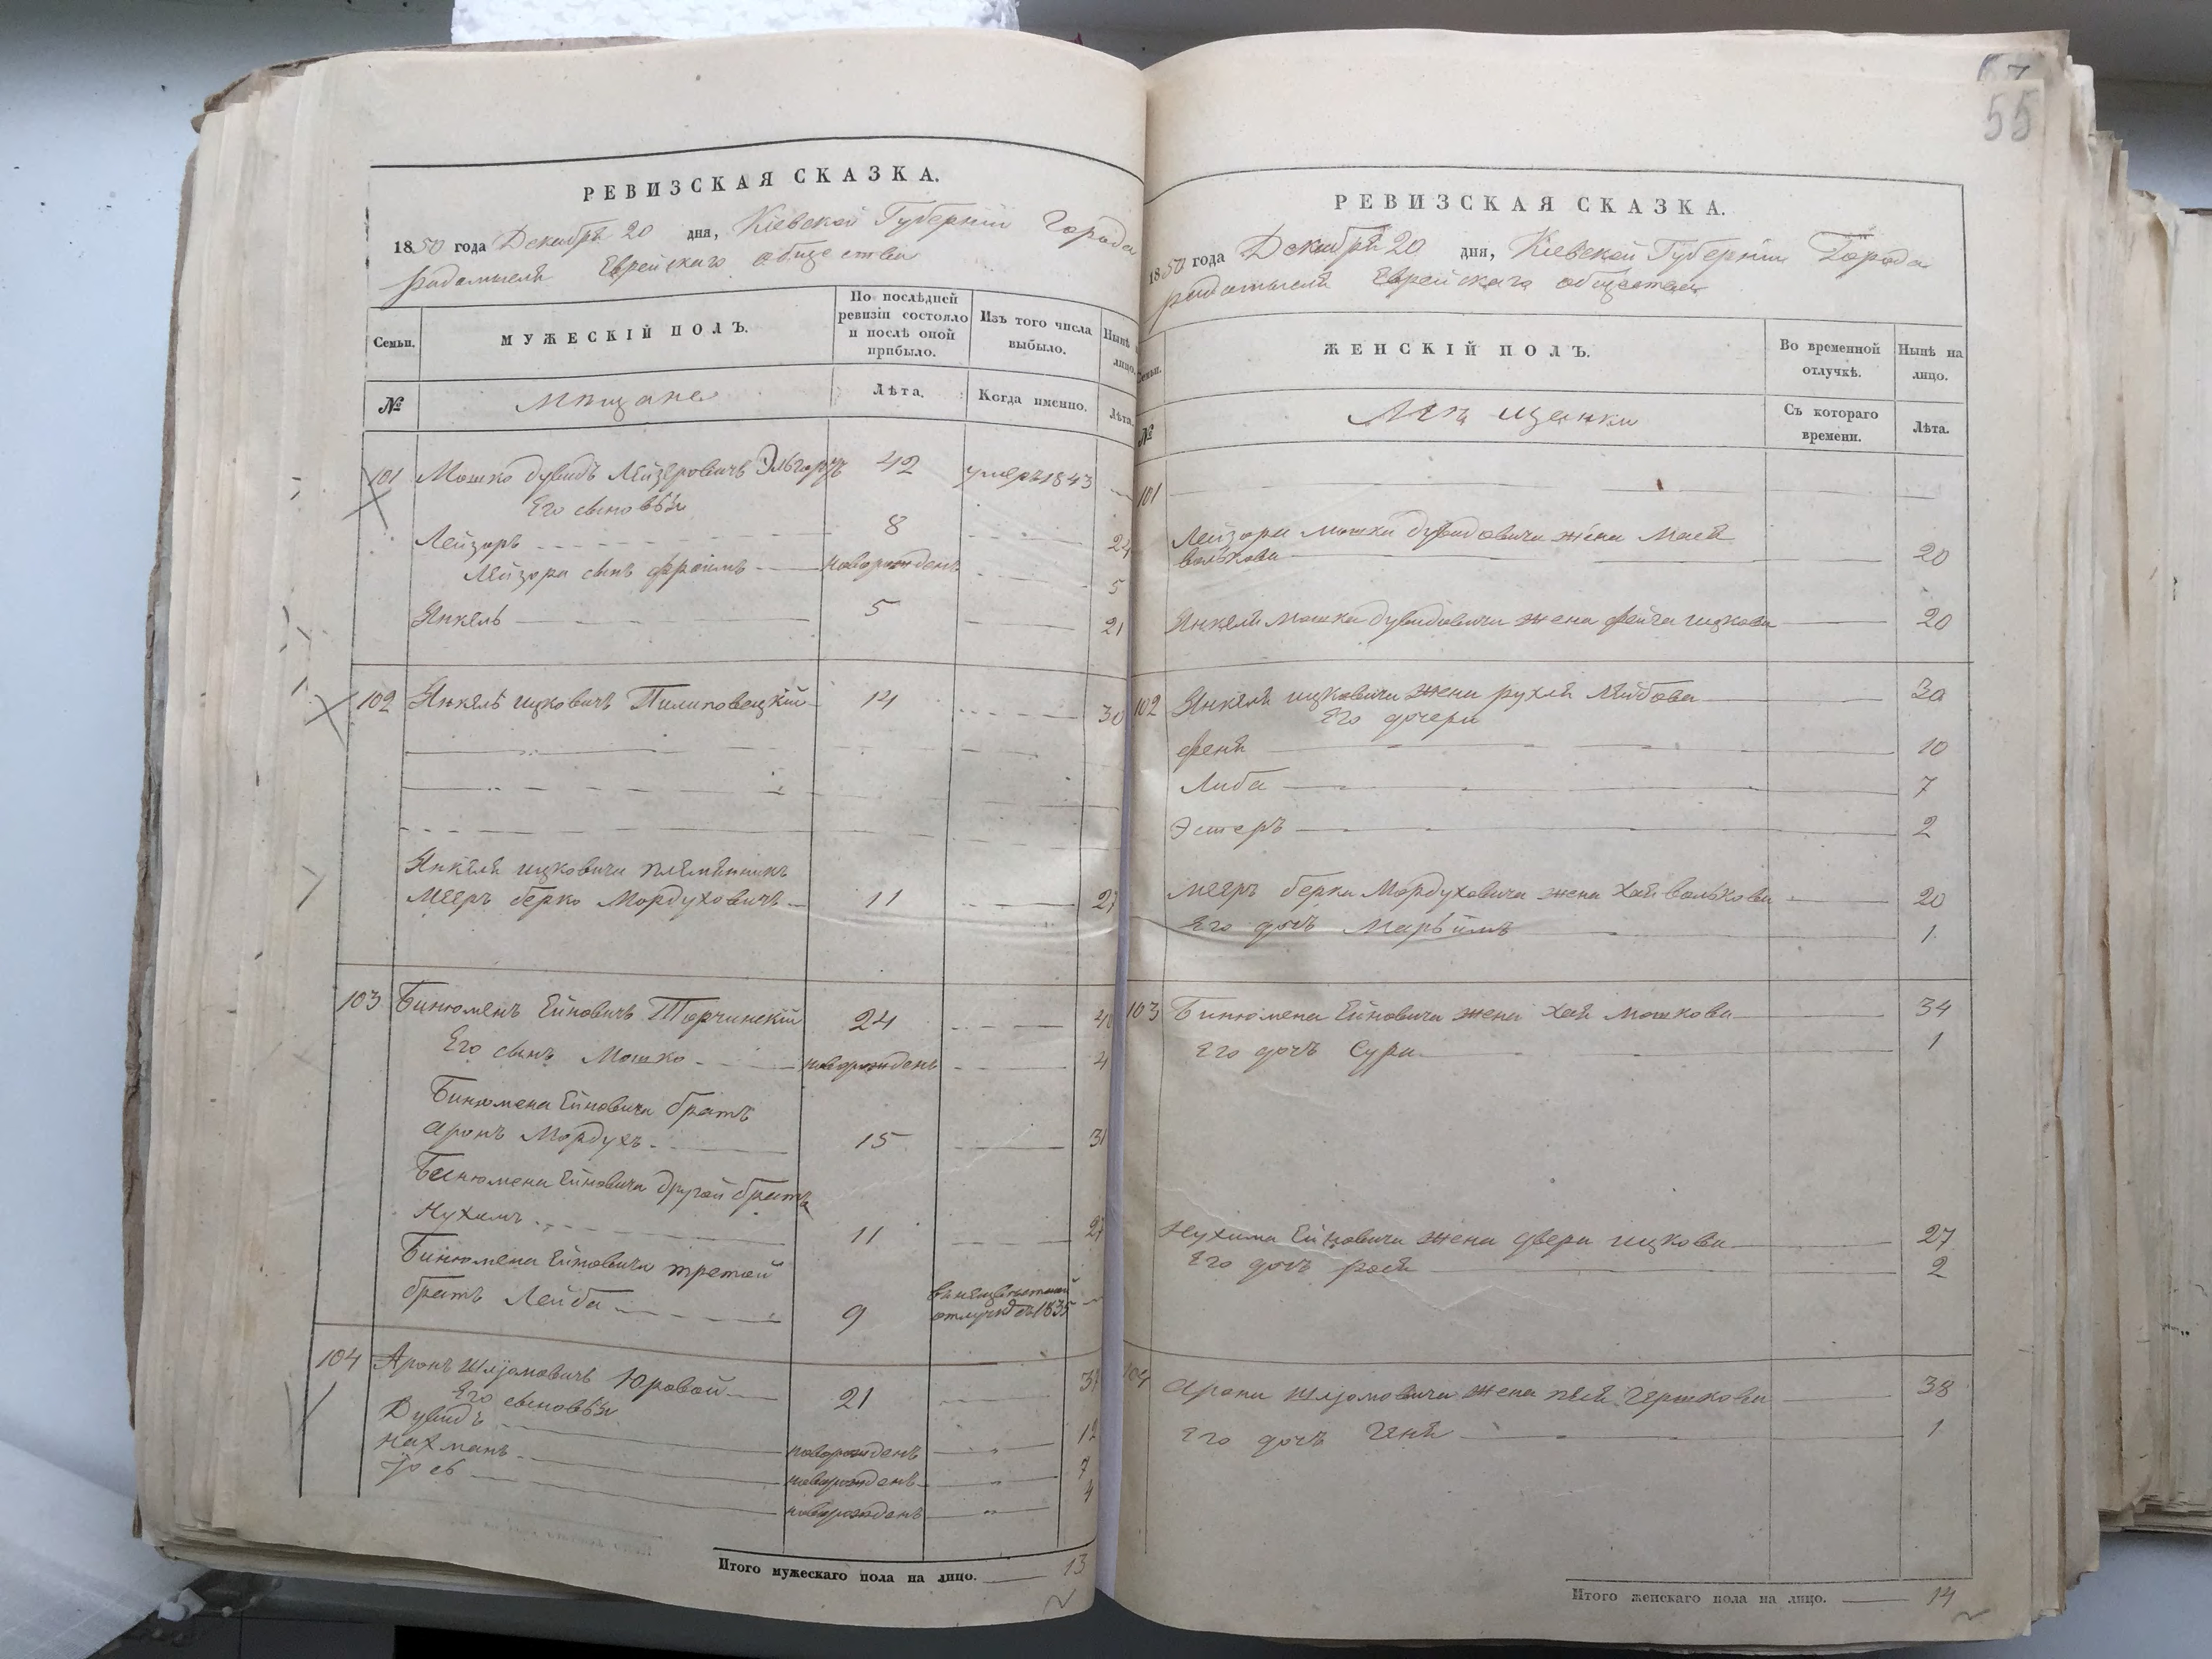 РЕВИЗСКАЯ СКАЗКА.
1850 года Декабря 20 дня, Кіевской Губерніи Города
Радомысля Еврейскаго общества
Семьи.
МУЖЕСКІЙ ПОЛЪ.
По послѣдней ревизіи состояло и послѣ оной прибыло.
Изъ того числа выбыло.
Нынѣ на лицо.
№
Мѣщане
Лѣта.
Когда именно.
Лѣта.
101 Мошко Дувидъ Лейзеровичъ 42 умеръ 1843
Его сыновья
Лейзоръ 8 24
Лейзора сынъ Фроимъ новорожденъ 5
Янкель 5 21
102 Янкель Ицковичъ Пилиповецкій 14 30
Янкеля Ицковича племянникъ
Мееръ Берко Мордуховичъ 11 27
103 Бинюменъ Ейновичъ Торчинскій 24 40
Его сынъ Мошко новорожденъ 4
Бинюмена Ейновича братъ
Аронъ Мордухъ 15 31
Бинюмена Ейновича другой братъ
Нухимъ 11 27
Бинюмена Ейновича третей
братъ Лейба 9 въ неизвѣстной отлучкѣ съ 1835
104 Аронъ Шлiомовичъ Юровой 21 37
Его сыновья
Дувидъ новорожденъ 12
Нахманъ новорожденъ 7
Іось новорожденъ 4
Итого мужескаго пола на лицо. 13
55
РЕВИЗСКАЯ СКАЗКА.
1850 года Декабря 20 дня, Кіевской Губерніи Города
Радомысля Еврейскаго общества
Семьи.
ЖЕНСКІЙ ПОЛЪ.
Во временной отлучкѣ.
Нынѣ на лицо.
№
Мѣщанки
Съ котораго времени.
Лѣта.
101
Лейзора Мошка Дувидовича жена Мася
Волькова 20
Янкеля Мошка Дувидовича жена Фейга Ицкова 20
102 Янкеля Ицковича жена Рухля Лейбова 30
Его дочери
Феня 10
Либа 7
Эстеръ 2
Мееръ Берка Мордуховича жена Хая Волькова 20
Его дочь Марьямъ 1
103 Бинюмена Ейновича жена Хая Мошкова 34
Его дочь Сура 1
Нухима Ейновича жена Двера Ицкова 27
Его дочь Рося 2
104 Арона Шлiомовича жена Песя Гершкова 38
Его дочь Геня 1
Итого женскаго пола на лицо. 14